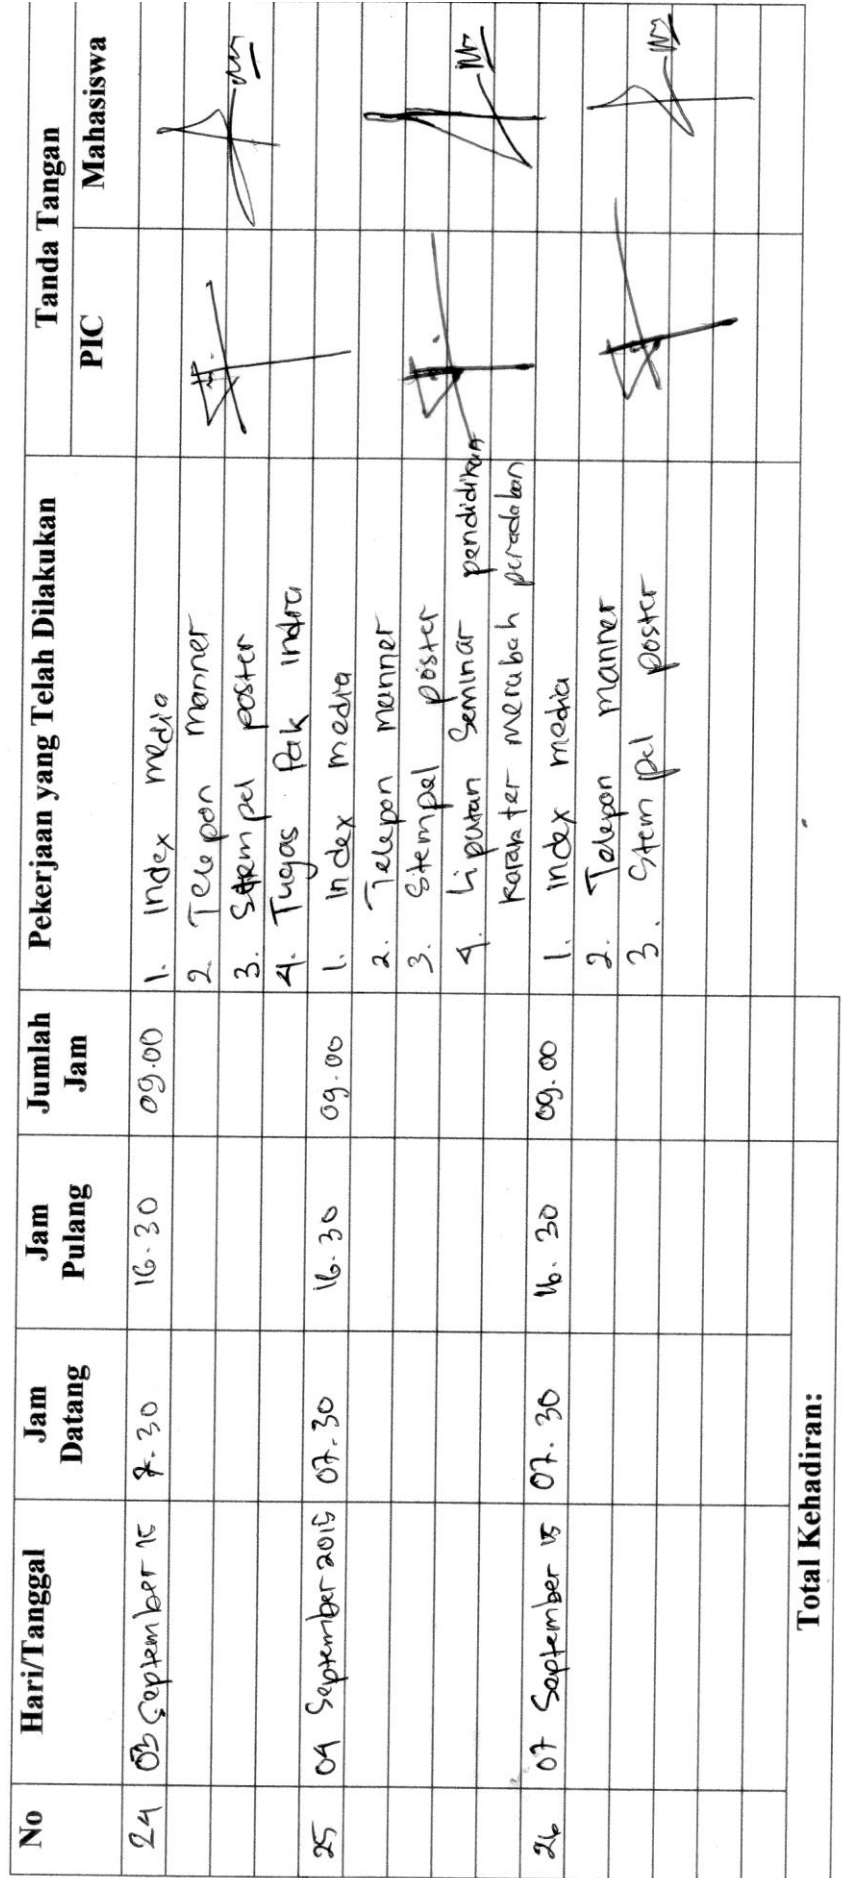 No Hari/Tanggal Jam Datang Jam Pulang Jumlah Jam Pekerjaan yang Telah Dilakukan Tanda Tangan
PIC Mahasiswa
24 03 September 15 7.30 16.30 09.00 1. Index media
2. Telepon manner
3. Stempel poster
4. Tugas Pak Indra
25 04 September 2015 07.30 16.30 09.00 1. Index media
2. Telepon manner
3. Stempel poster
4. Liputan Seminar pendidikan
karakter merubah peradaban
26 07 September 15 07.30 16.30 09.00 1. Index media
2. Telepon manner
3. Stempel poster
Total Kehadiran: